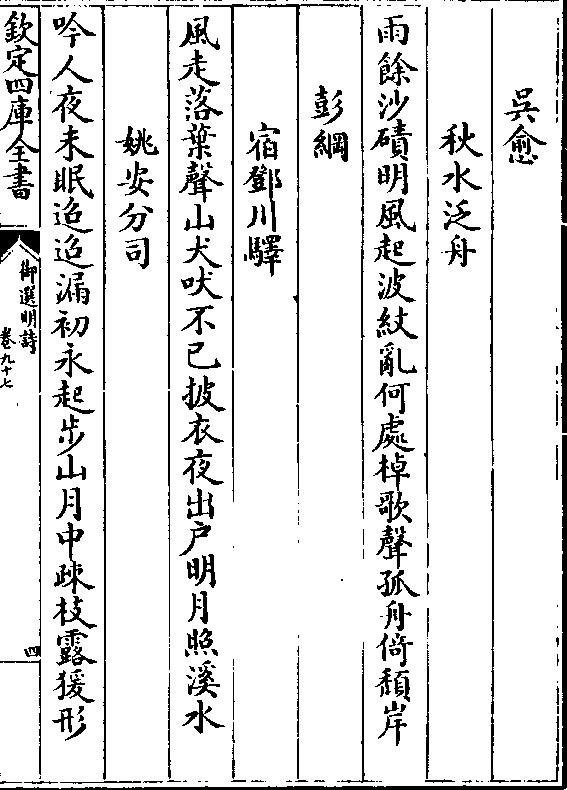 吳愈
秋水泛舟
雨餘沙磧明風起波紋亂何處棹歌聲孤舟倚頹岸
彭綱
宿鄧川驛
風走落葉聲山犬吠不已披衣夜出户明月照溪水
姚安分司
吟人夜未眠迢迢漏初永起步山月中疎枝露猨形
欽定四庫全書
御選明詩
卷九十七
四